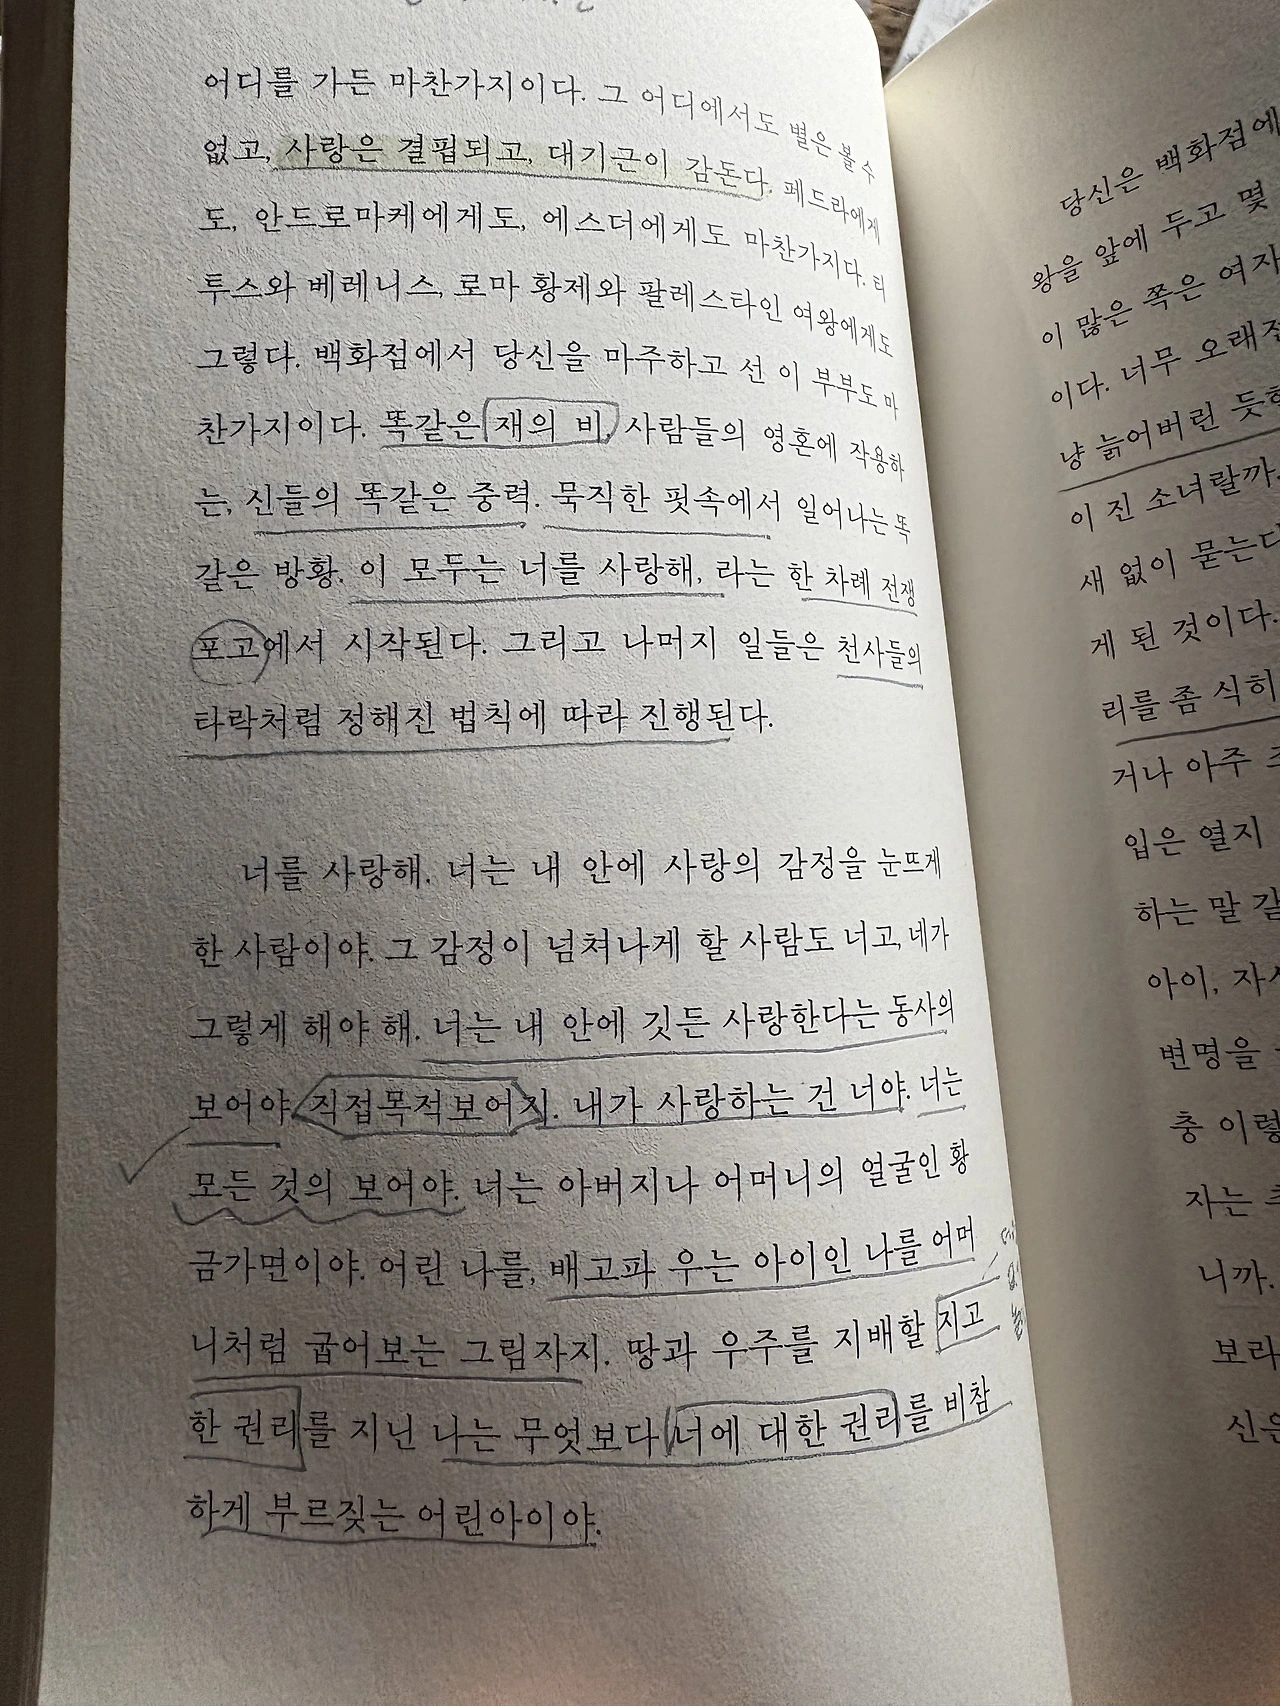 어디를 가든 마찬가지이다. 그 어디에서도 별은 볼 수
없고, 사랑은 결핍되고, 대기근이 감돈다. 페드라에게
도, 안드로마케에게도, 에스더에게도 마찬가지다. 티
투스와 베레니스, 로마 황제와 팔레스타인 여왕에게도
그렇다. 백화점에서 당신을 마주하고 선 이 부부도 마
찬가지이다. 똑같은 재의 비, 사람들의 영혼에 작용하
는, 신들의 똑같은 중력. 묵직한 핏속에서 일어나는 똑
같은 방황. 이 모두는 너를 사랑해, 라는 한 차례 전쟁
포고에서 시작된다. 그리고 나머지 일들은 천사들의
타락처럼 정해진 법칙에 따라 진행된다.
너를 사랑해. 너는 내 안에 사랑의 감정을 눈뜨게
한 사람이야. 그 감정이 넘쳐나게 할 사람도 너고, 네가
그렇게 해야 해. 너는 내 안에 깃든 사랑한다는 동사의
보어야. 직접목적보어지. 내가 사랑하는 건 너야. 너는
모든 것의 보어야. 너는 아버지나 어머니의 얼굴인 황
금가면이야. 어린 나를, 배고파 우는 아이인 나를 어머
니처럼 굽어보는 그림자지. 땅과 우주를 지배할 지고
한 권리를 지닌 나는 무엇보다 너에 대한 권리를 비참
하게 부르짖는 어린아이야.
당신은 백화점에
왕을 앞에 두고 몇
이 많은 쪽은 여자
이다. 너무 오래
냥 늙어버린 듯
이 진 소녀랄까.
새 없이 묻는
게 된 것이다.
리를 좀 식히
거나 아주
입은 열지
하는 말
아이,
변명을
충
자는
니까.
보라
신은